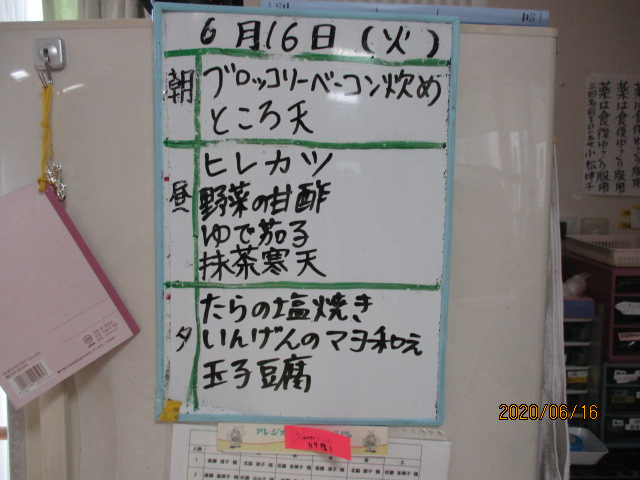 6月16日(火)
朝
ブロッコリーベーコン炊め
ところ天
昼
ヒレカツ
野菜の甘酢
ゆで茄子
抹茶寒天
夕
たらの塩焼き
いんげんのマヨ和え
玉子豆腐
薬は食後ゆっくり服用
2020/06/16